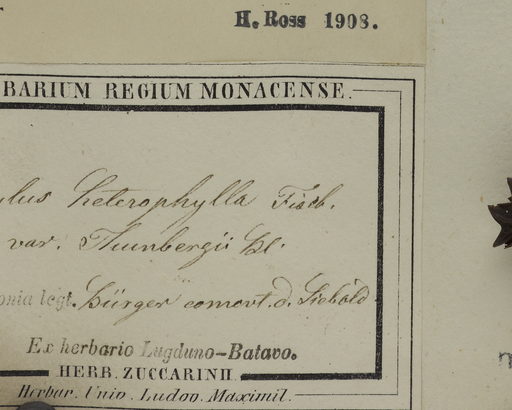 H. Ross 1908.
BARIUM REGIUM MONACENSE.
lus heterophylla Fisch.
var. Thunbergii Bl.
onia legt. Bürger comort. d. Siebold
Ex herbario Lugduno-Batavo.
HERB. ZUCCARINII
Herbar. Univ. Ludov. Maximil.